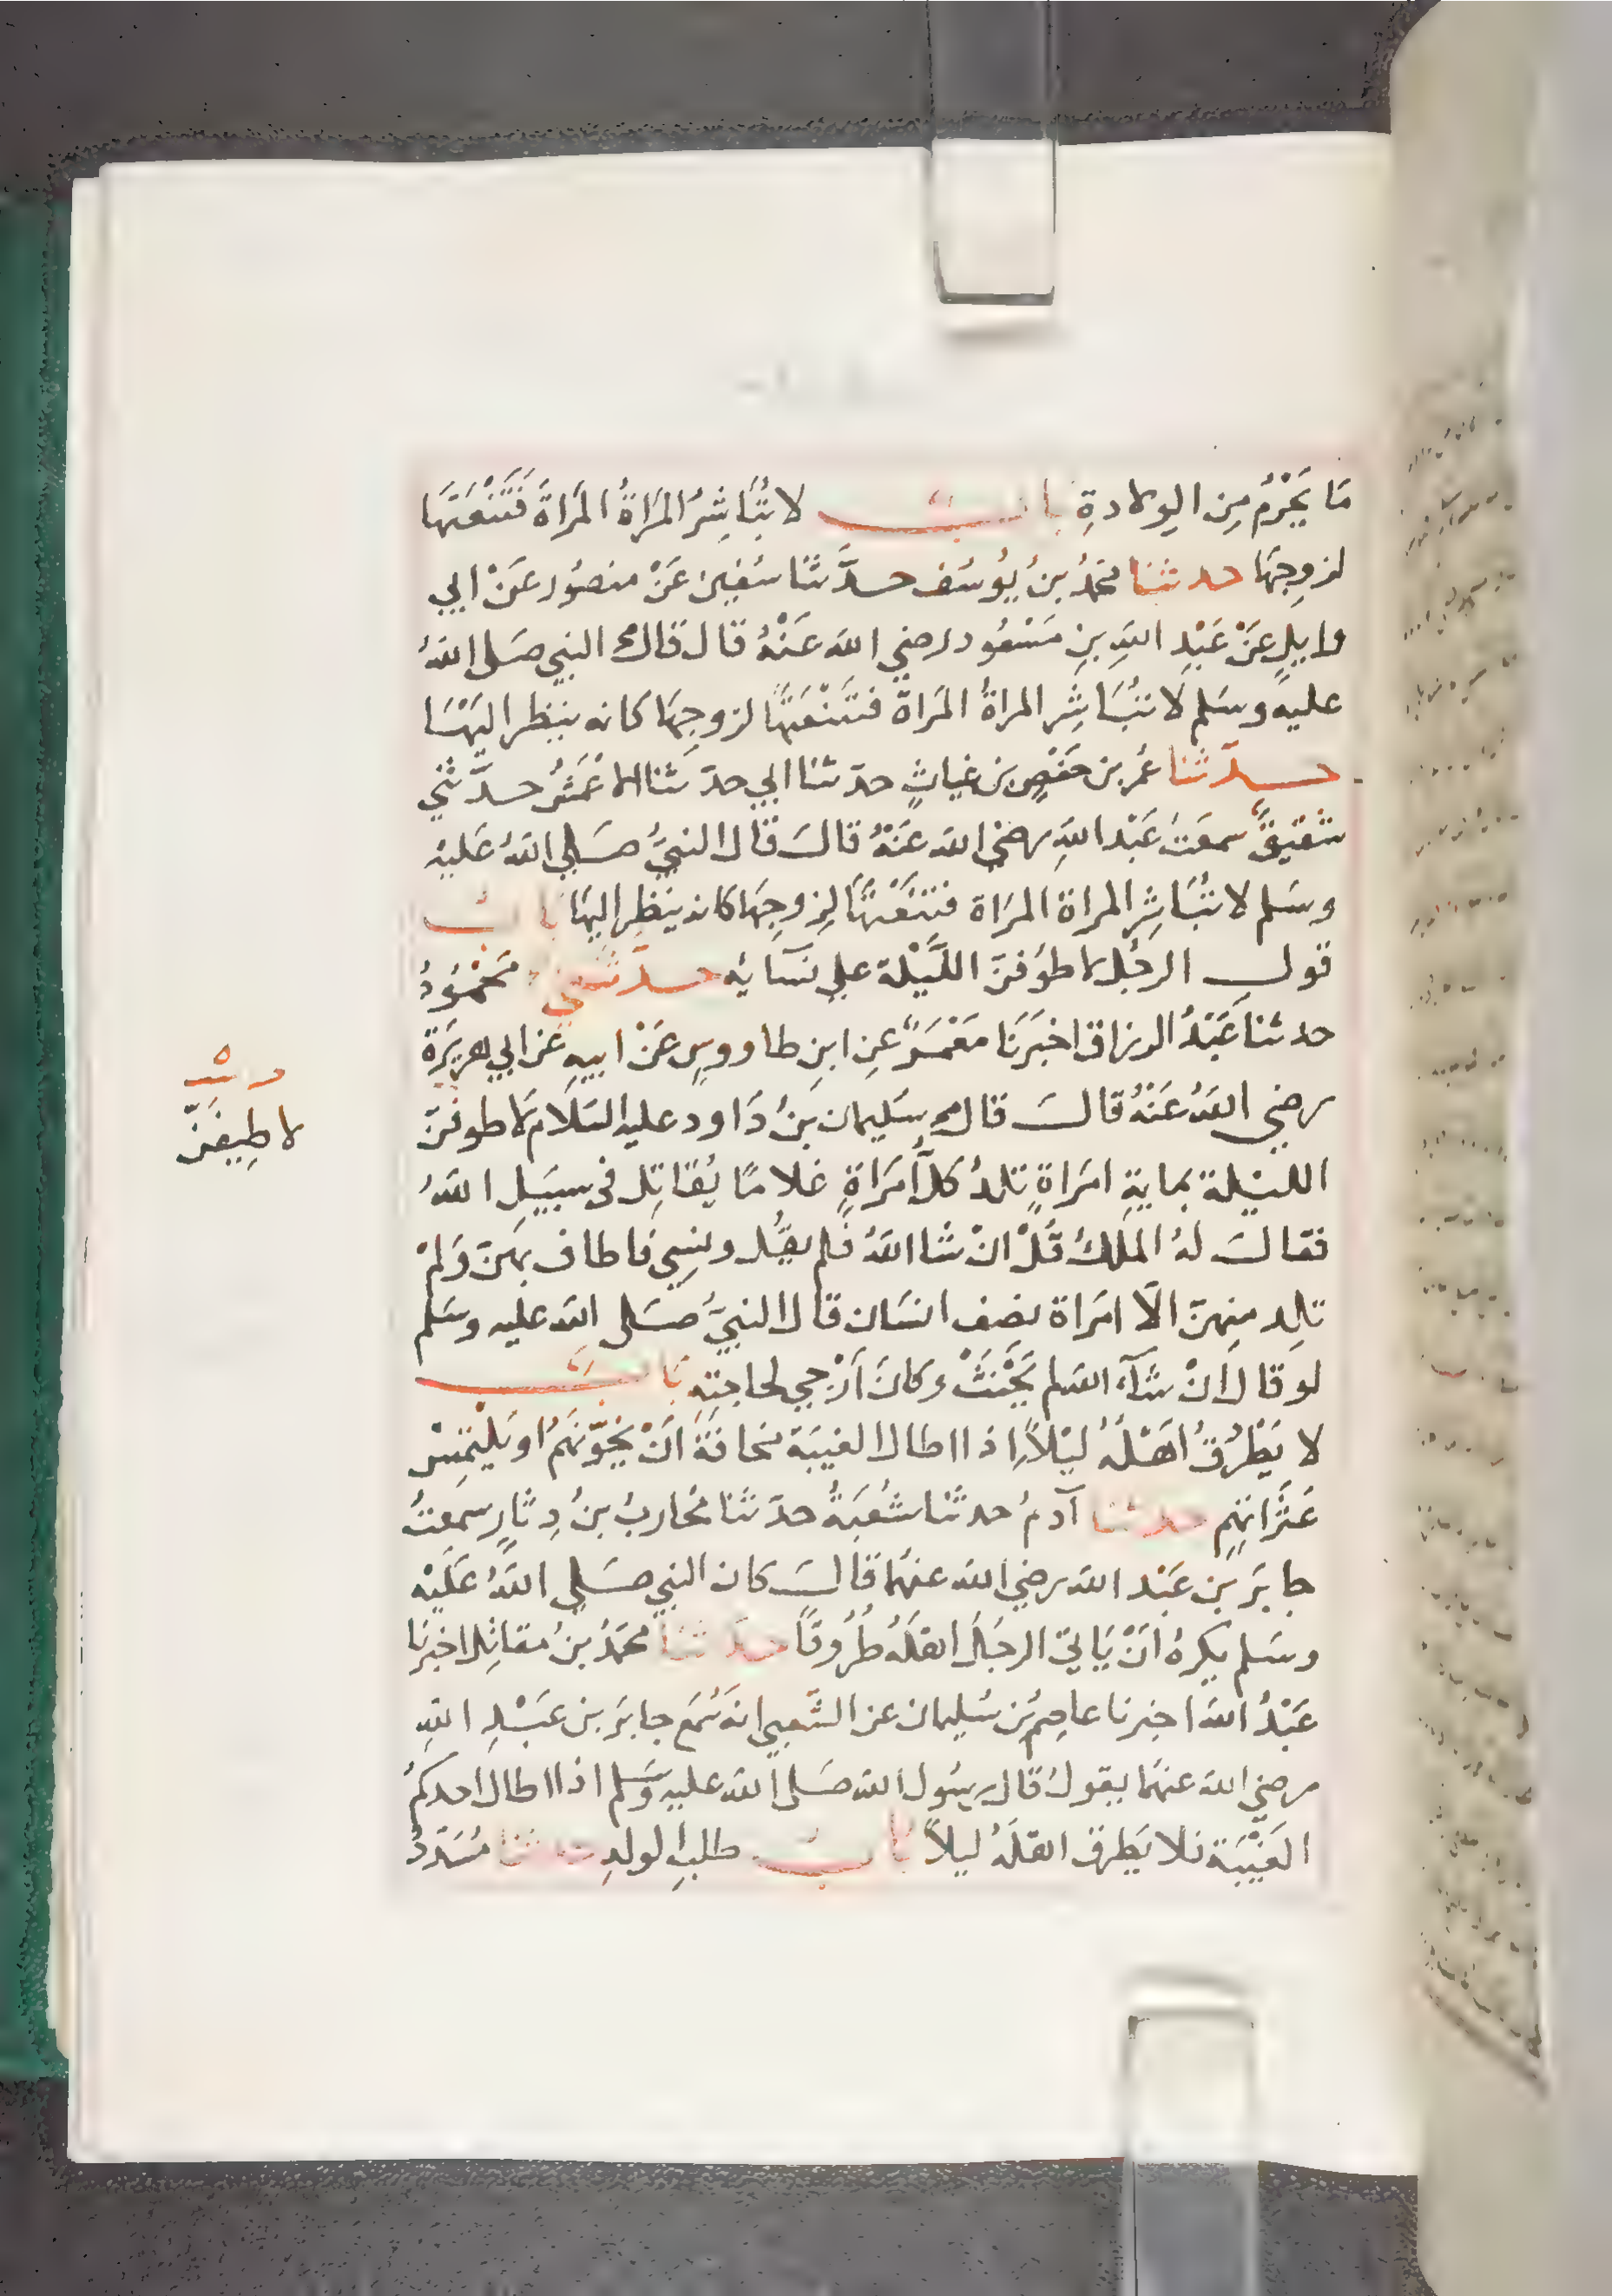 مَا يَحْرُمُ مِن الوِلادةِ بابٌ لا تُبَاشِرُ المَرَاةُ المَرَاةَ فَتَنْعَتَهَا
لزوِجِهَا حدثنا محمدُ بنُ يُوسُف حدَّثنا سُفيٰن عَنْ منصُور عَنْ ابي
وايلٍ عَنْ عَبْدِ اللهِ بنِ مَسْعُود رضي الله عَنْهُ قال قال النبي صَلى اللهُ
عليهِ وسَلم لا تُبَاشِر المراةُ المَراةَ فتَنْعَتَهَا لزوجِهَا كانه ينظر اليَهْا
حدّثنا عُمر بن حَفْصِ بن غياثٍ حدثنا ابي حدثنا الاعْمَشُ حدّثني
شقيقٌ سمعَتُ عَبْد اللهِ رضي الله عَنْهُ قالَ قال النبيُّ صَلي اللهُ عَليهِ
وسَلم لا تُبَاشِر المراة المرَاة فتنْعَتَهَا لِزوجِهَا كانه ينظِر اليهَا بابُ
قول الرجُل لاطوُفنَّ اللَّيْلة علي نسَآئِه حدّثني مَحْمُودُ
حدثنا عَبْدُ الرزاق اخبَرَنَا مَعْمَرٌ عنِ ابنِ طاووسٍ عَنْ ابيهِ عَن ابي هريرَة
رضي اللهُ عَنْهُ قالَ قال سُليمان بنُ دَاود عليهِ السَلام لاطوفنّ
الليْلة بمايةِ امرَاةٍ تلدُ كلُّ امرَاةٍ غلامًا يُقاتِل في سبيَلِ اللهُ
فقالَ لهُ المَلكُ قُلْ انْ شا اللهُ فلم يقُل ونسِي فاطاف بهنّ وَلمْ
تلِد منِهنّ الّا امرَاة نصِف انسَان قال النبيُّ صَلى الله عليه وسَلم
لو قال انْ شآءَ الله لم يَحْنَثْ وكانَ اَرْجي لحاجتِهِ بابٌ
لا يَطْرُقُ اهَلهُ ليْلاً اِذا اطال الغيبَة مخافَةَ اَنْ يُخَوّنَهُم او يَلتِمسْ
عَثَراتِهِم حدثنا آدمُ حدثنا شُعْبَةُ حدّثنا مُحَاربُ بنُ دِثارٍ سمعتُ
جابَر بن عَبْد الله رضي الله عنهُما قالَ كان النبي صَلي اللهُ عَلَيْه
وسَلم يكرهُ اَنْ يَاتيَ الرجُل اهْلهُ طُرُوقًا حدثنا محمَدُ بنُ مقاتِل اخبَرنَا
عَبْدُ اللهَ اخبرنا عاصِمُ بُن سُليمان عن الشَعبي انهَ سَمعَ جابَر بن عَبْدِ اللهِ
رضي الله عنهمَا يقول قال رسُول الله صَلى الله عليهِ وسَلم اذا اطال احدكمُ
الغَيْبَة فلا يَطرق اهْلَهُ ليلاً بابُ طلبِ الولدِ حدثنا مُسَدّدُ
لاطِيفَنّ